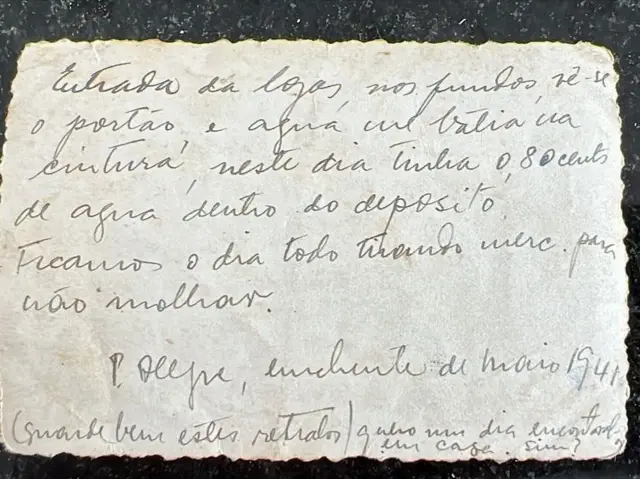 Entrada da lojas, nos fundos, vê-se
o portão, e agua me batia na
cintura, neste dia tinha 0,80 cents
de agua dentro do deposito.
Ficamos o dia todo tirando merc. para
não molhar.
P. Alegre, enchente de maio 1941.
(guarde bem estes retratos) quero um dia
em casa. sim?